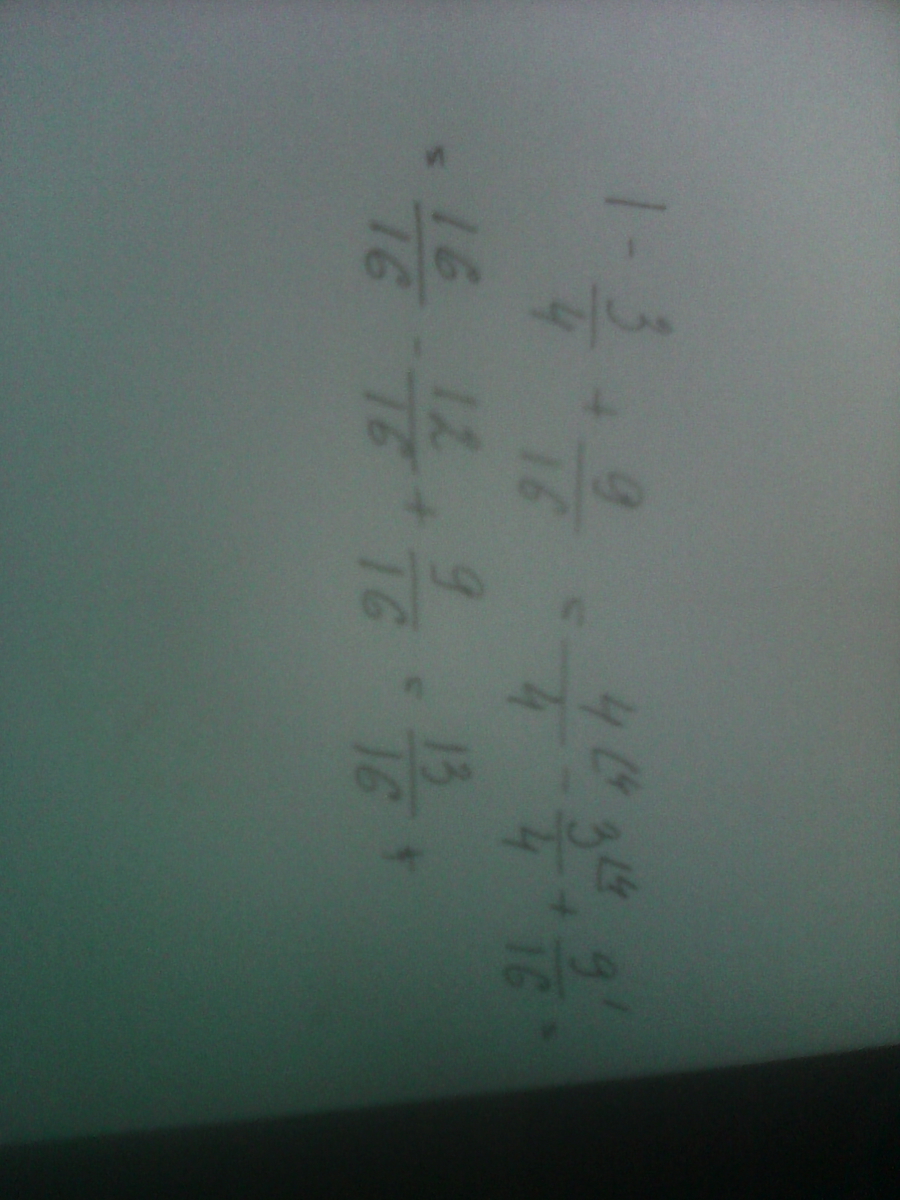 1 - 3/4 + 9/16 = 4/4 - 3/4 + 9/16 =
= 16/16 - 12/16 + 9/16 = 13/16